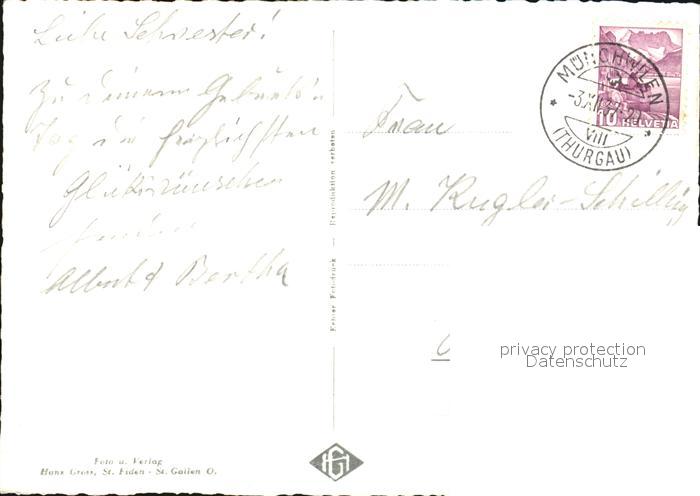 Liebe Schwester!
Zu Deinem Geburts
Tag die herzlichsten
Glückwünsche
Albert & Bertha
Echter Fotodruck — Reproduktion verboten
Foto u. Verlag
Hans Gross, St. Fiden - St. Gallen O.
HG
MÜNCHWILEN
-3.XII.37-21
VIII
(THURGAU)
10 HELVETIA
Frau
M. Kugler-Schilling
privacy protection
Datenschutz